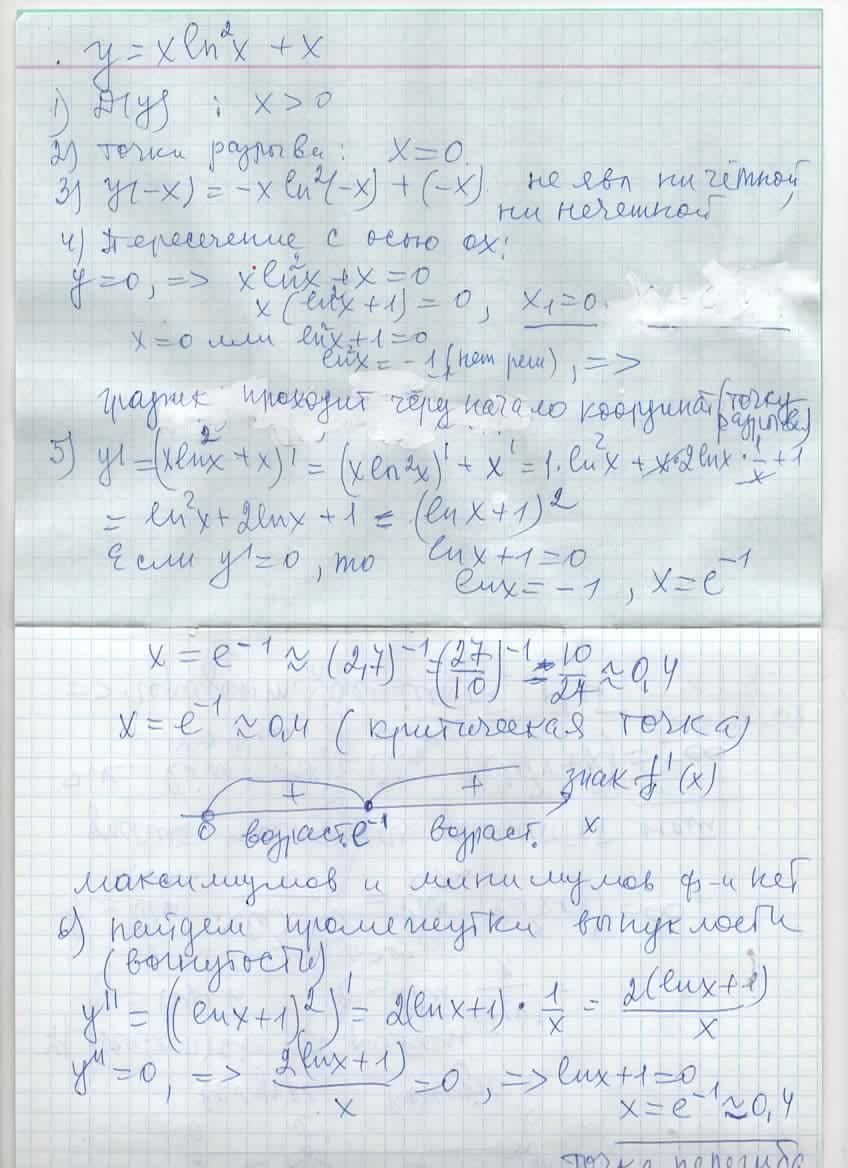 y = x ln²x + x
1) D(y) : x > 0
2) точки разрыва: x = 0.
3) y(-x) = -x ln²(-x) + (-x). не явл ни чётной,
ни нечетной
4) Пересечение с осью ox:
y=0, => x ln²x + x = 0
x (ln²x + 1) = 0, x₁=0
x=0 или ln²x+1=0
ln²x = -1 (нет реш), =>
график проходит через начало координат (точку
разрыва)
5) y' = (x ln²x + x)' = (x ln²x)' + x' = 1·ln²x + x·2lnx·1/x + 1
= ln²x + 2lnx + 1 = (lnx+1)²
Если y'=0, то lnx+1=0
lnx = -1, x = e⁻¹
x = e⁻¹ ≈ (2,7)⁻¹ = (27/10)⁻¹ = 10/27 ≈ 0,4
x = e⁻¹ ≈ 0,4 (критическая точка)
+ + знак f'(x)
0 возраст. e⁻¹ возраст. x
максимумов и минимумов ф-и нет
6) найдем промежутки выпуклости
(вогнутости)
y'' = ((lnx+1)²)' = 2(lnx+1)·1/x = 2(lnx+1)/x
y''=0, => 2(lnx+1)/x = 0, => lnx+1=0
x = e⁻¹ ≈ 0,4
точка перегиба